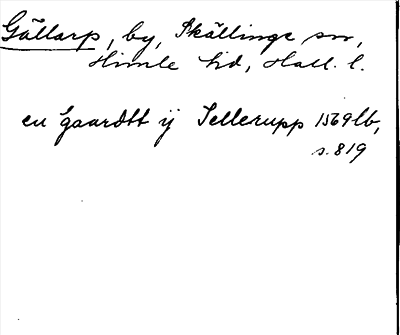 Gällarp, by, Skällinge sn,
Himle hd, Hall. l.
en gaardtt ÿ Jellerupp 1569 lb,
s. 819